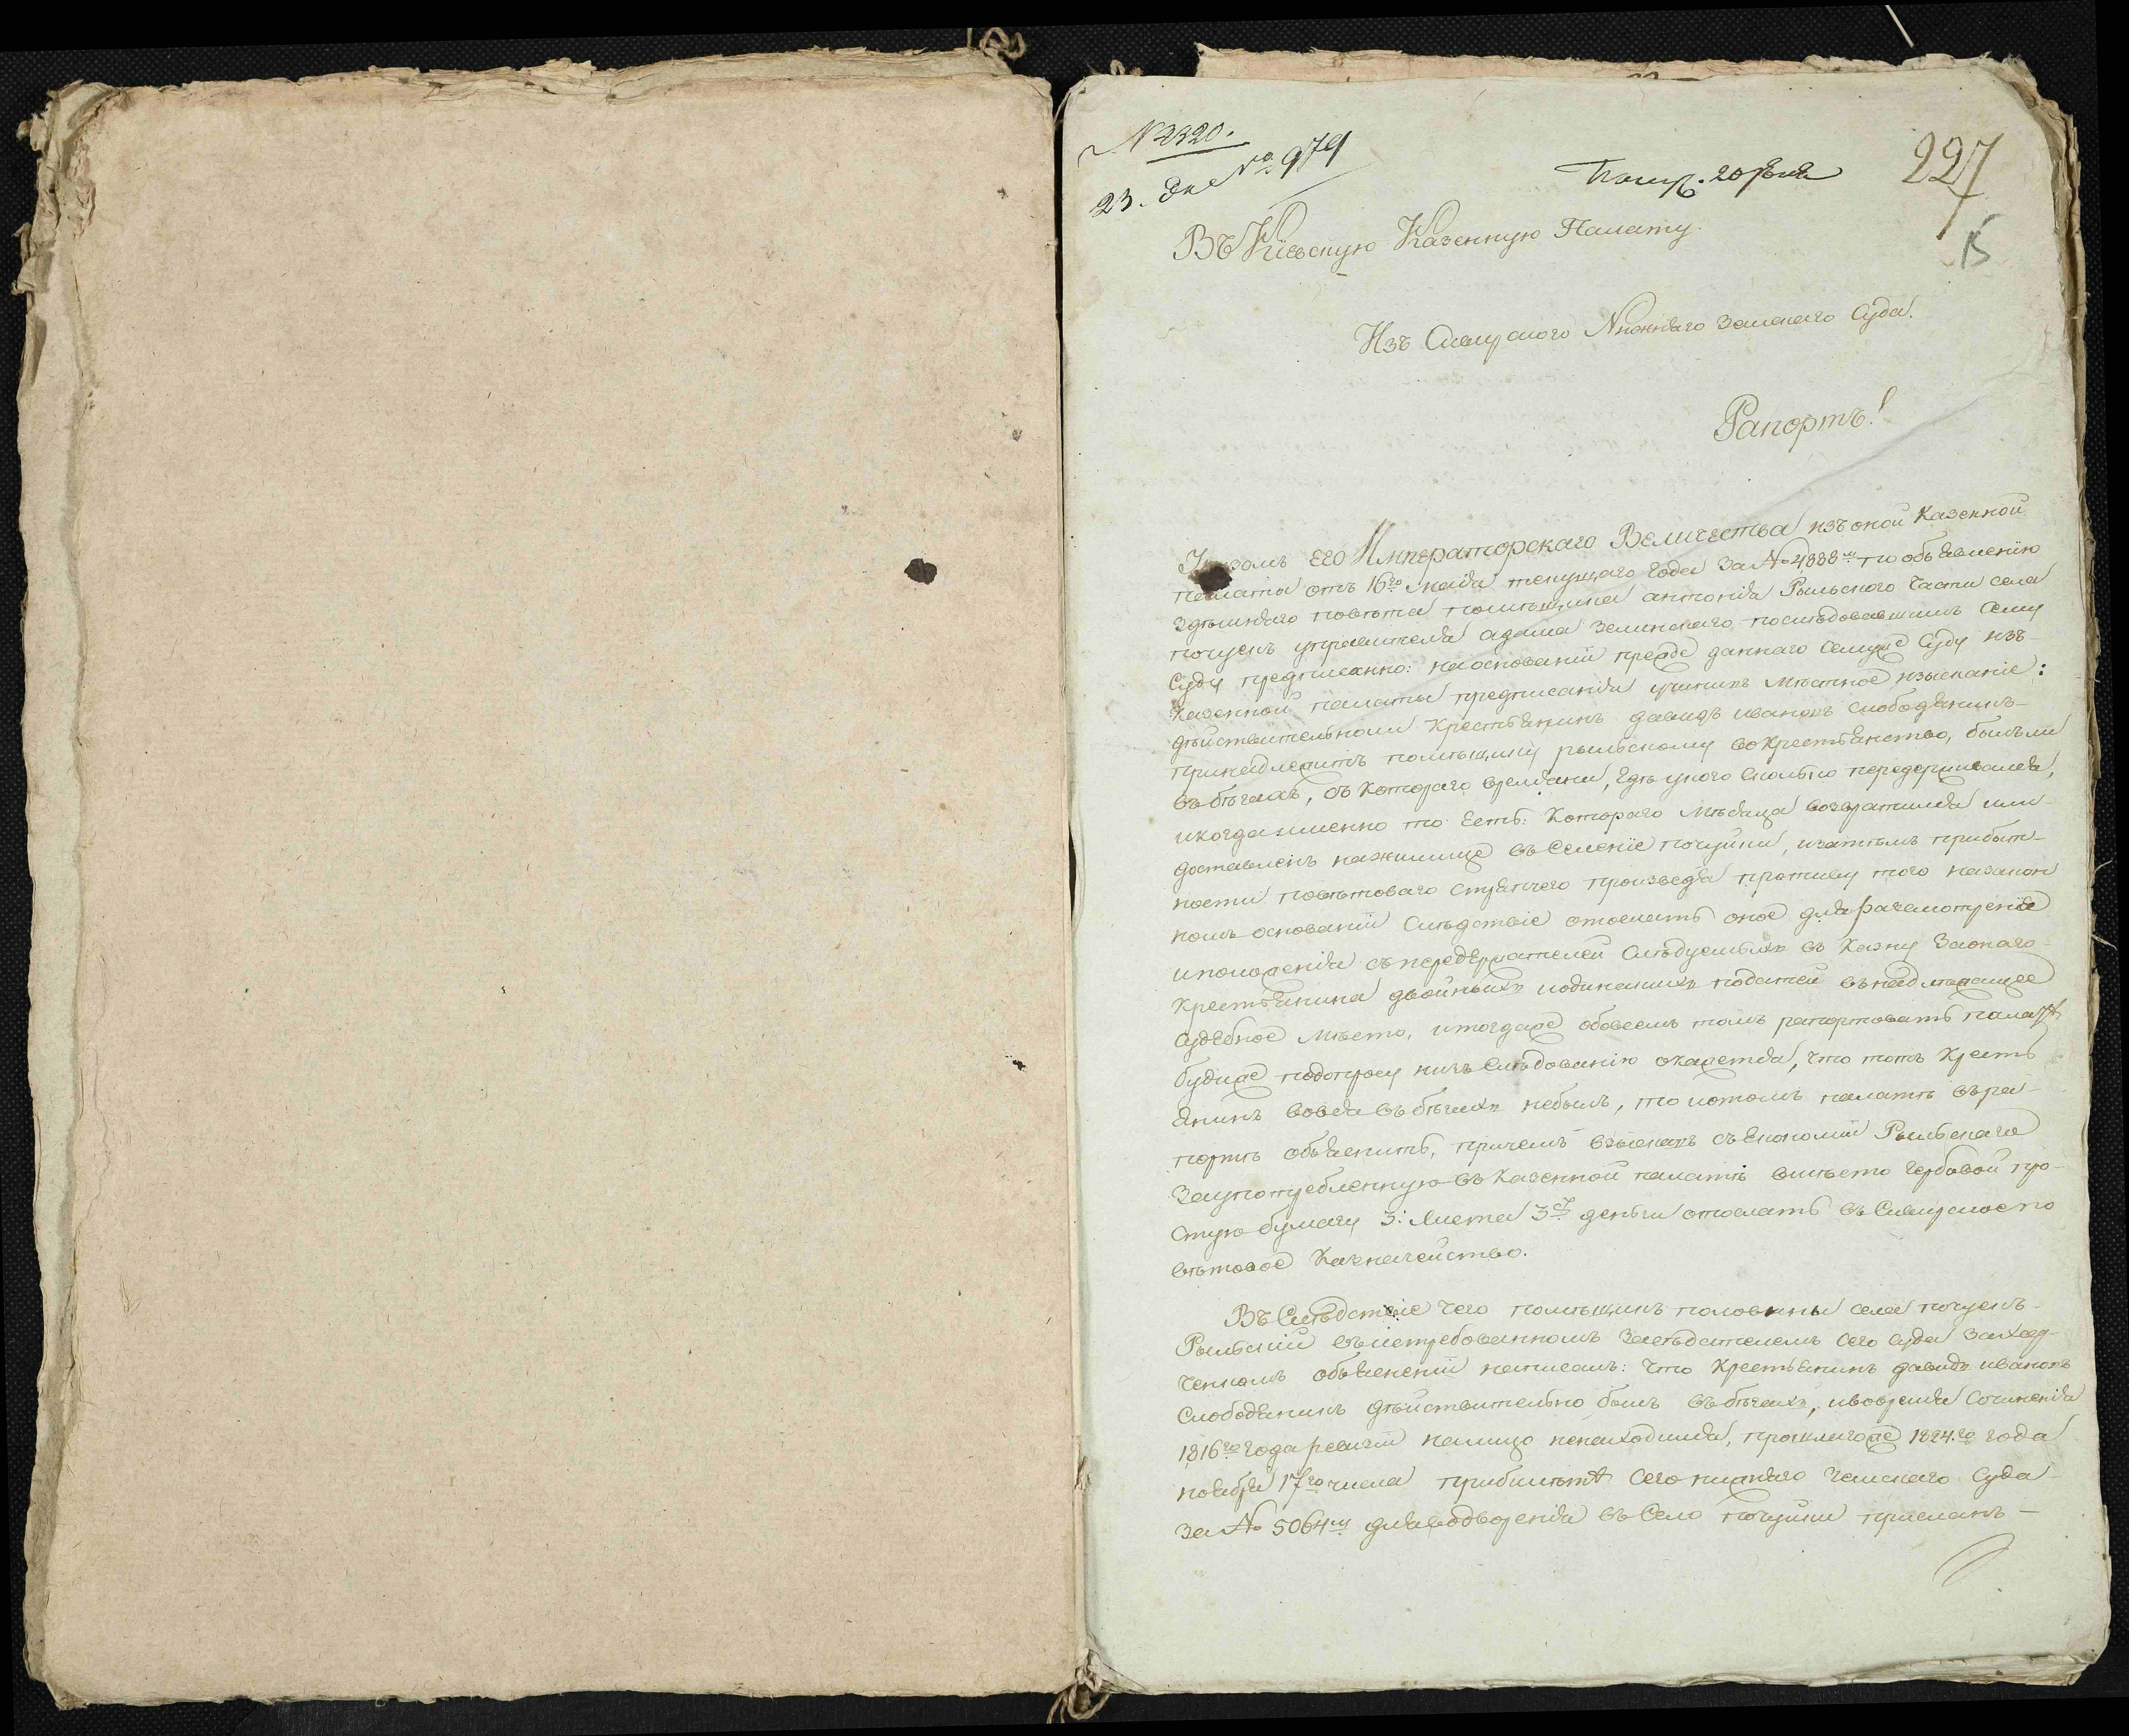 № 2320.
23. № 979
227
15
Въ Кіевскую Казенную Палату.
Изъ Сквирского Нижнего Земскаго Суда!
Рапортъ!
Указомъ Его Императорскаго Величества изъ оной Казенной
палаты отъ 16го маія текущаго года за № 4888м по объявленію
здѣшняго повѣта помѣщика антонія Рыльского части села
почуекъ управителя адама Зелинскаго последовавшимъ Сему
Суду предписанно: наоснованіи прежде даннаго Семуже Суду изъ
Казенной палаты предписанія учинить мѣстное изысканіе:
дѣйствительноли Крестьянинъ давидъ ивановъ слободянинъ
принадлежитъ помѣщику рыльскому вокрестьянство, былъли
въ бѣгахъ, съ Котораго времѣни, гдѣ укого сколько передерживался,
икогда именно то есть: Котораго мѣсяца возвратился или
доставленъ нажилище въ Селеніе почуйки, изатѣмъ прибыт-
ности повѣтоваго стряпчего произведя противу того назакон
номъ основаніи Слѣдствіе отослать оное для разсмотренія
иположенія съ передержателей Слѣдуемыхъ въ Казну Заонаго
Крестьянина двойныхъ иодинакихъ податей въ надлежащее
судебное мѣсто, итогдаже обовсемъ томъ рапортовать палатѣ
будиже подопросу иизъ Слѣдованію окажется, что тотъ Кресть
янинъ вовся въ бѣгахъ небылъ, то иотомъ палатѣ въ ра-
портѣ объяснить, причемъ взыскавъ съ Економіи Рыльскаго
Заупотребленную въ Казенной палатѣ вмѣсто гербовой про-
стую бумагу 3: Листа деньги отослать въ Сквирское по
вѣтовое Казначейство.
Въ Слѣдствіе чего помѣщикъ половины села почуекъ
Рыльскій въ истребованномъ Засѣдателемъ Сего Суда Захар-
ченкомъ объясненіи написалъ: что Крестьянинъ давидъ ивановъ
Слободянинъ дѣйствительно былъ въ бѣгахъ, ивовремя Сочиненія
1816го года ревизіи налицо ненаходился, прошлагоже 1824го года
ноября 17го числа прибилетѣ Сего нижняго земскаго Суда
за № 5064м дляводворенія въ Село почуйки присланъ —